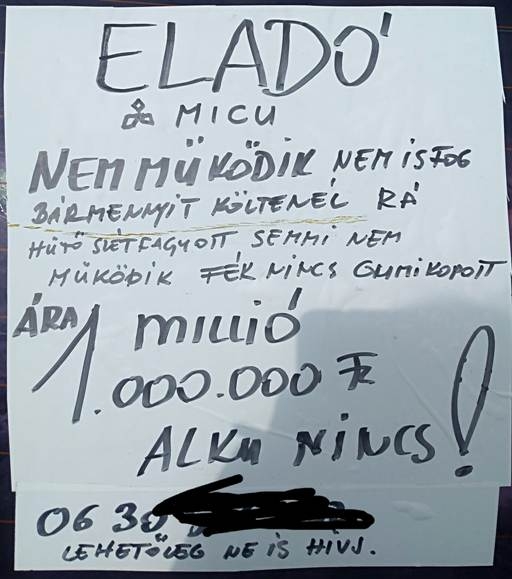 ELADÓ
MICU
NEM MŰKÖDIK NEM IS FOG
BÁRMENNYIT KÖLTENÉL RÁ
HŰTŐ SZÉTFAGYOTT SEMMI NEM
MŰKÖDIK FÉK NINCS GUMI KOPOTT
ÁRA 1 MILLIÓ
1.000.000 Ft
ALKU NINCS!
06 30
LEHETŐLEG NE IS HÍVJ.